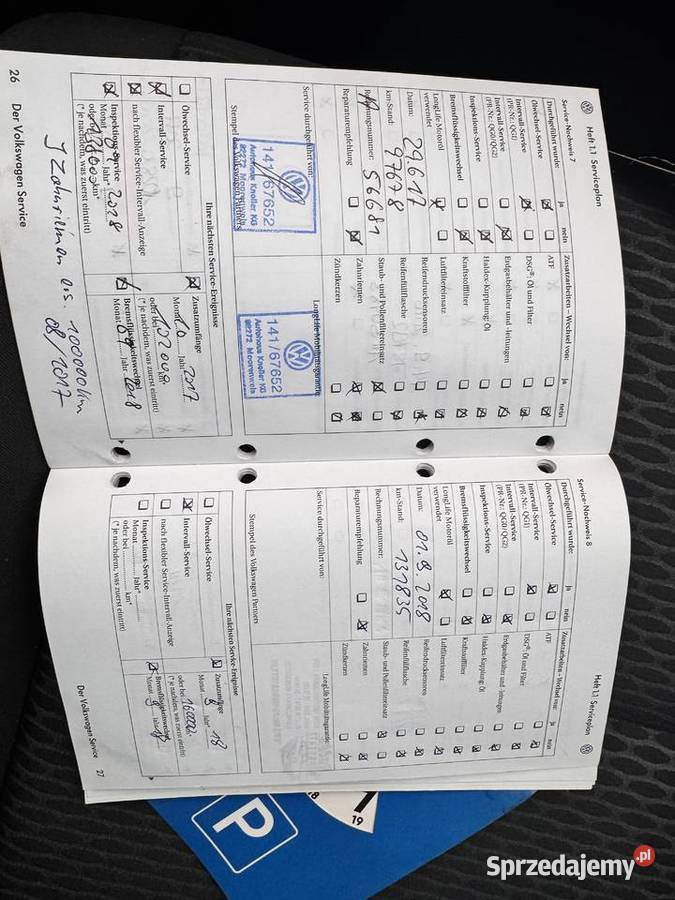 Heft 1.1 Serviceplan
Service-Nachweis 7
Durchgeführt wurde: ja nein
Ölwechsel-Service
Intervall-Service
(PR-Nr.: QG1)
Intervall-Service
(PR-Nr.: QG0/QG2)
Inspektions-Service
Bremsflüssigkeitswechsel
LongLife Motoröl
verwendet
Datum: 29.6.17
km-Stand: 97678
Rechnungsnummer: 56681
Reparaturempfehlung
Zusatzarbeiten – Wechsel von: ja nein
ATF
DSG®: Öl und Filter
Erdgasbehälter und -leitungen
Haldex-Kupplung/Öl
Kraftstofffilter
Luftfiltereinsatz
Reifendrucksensoren
Reifenfüllflasche
Staub- und Pollenfiltereinsatz
Zahnriemen
Zündkerzen
Service durchgeführt von:
141/67652
Autohaus Kneller KG
82272 Moorenweis
Stempel des Volkswagen Partners
LongLife Mobilitätsgarantie
141/67652
Autohaus Kneller KG
82272 Moorenweis
Ihre nächsten Service-Ereignisse
Ölwechsel-Service
Intervall-Service
nach flexibler Service-Intervall-Anzeige
Inspektions-Service
Monat Jahr* 2018
oder bei km*
(* je nachdem, was zuerst eintritt)
Zusatzumfänge
Monat Jahr* 2017
oder bei km*
(* je nachdem, was zuerst eintritt)
Bremsflüssigkeitswechsel
Monat Jahr 2018
Zahnriemen 100000 km
08/2017
26 Der Volkswagen Service
Heft 1.1 Serviceplan
Service-Nachweis 8
Durchgeführt wurde: ja nein
Ölwechsel-Service
Intervall-Service
(PR-Nr.: QG1)
Intervall-Service
(PR-Nr.: QG0/QG2)
Inspektions-Service
Bremsflüssigkeitswechsel
LongLife Motoröl
verwendet
Datum: 01.9.2018
km-Stand: 131835
Rechnungsnummer:
Reparaturempfehlung
Zusatzarbeiten – Wechsel von: ja nein
ATF
DSG®: Öl und Filter
Erdgasbehälter und -leitungen
Haldex-Kupplung/Öl
Kraftstofffilter
Luftfiltereinsatz
Reifendrucksensoren
Reifenfüllflasche
Staub- und Pollenfiltereinsatz
Zahnriemen
Zündkerzen
Service durchgeführt von:
Stempel des Volkswagen Partners
LongLife Mobilitätsgarantie
Ihre nächsten Service-Ereignisse
Ölwechsel-Service
Intervall-Service
nach flexibler Service-Intervall-Anzeige
Inspektions-Service
Monat Jahr*
oder bei km*
(* je nachdem, was zuerst eintritt)
Zusatzumfänge
Monat Jahr* 18
oder bei 160000 km*
(* je nachdem, was zuerst eintritt)
Bremsflüssigkeitswechsel
Monat Jahr
Der Volkswagen Service 27
P
18
19
Sprzedajemy.pl